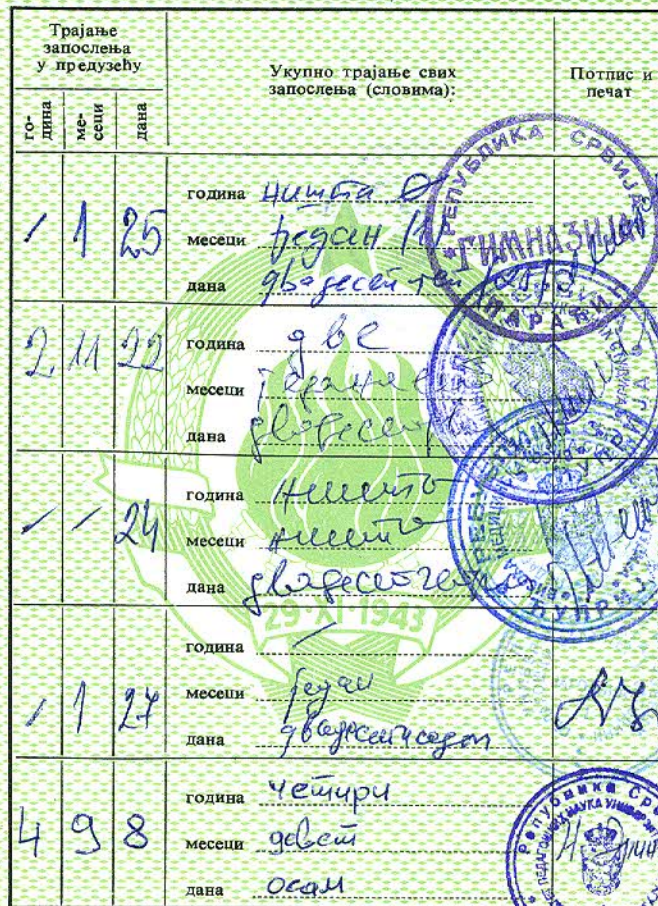 Трајање запослења у предузећу
Укупно трајање свих запослења (словима):
Потпис и печат
го-дина
ме-сеци
дана
/ 1 25
година ништа 0
месеци један /1/
дана двадесет пет /25/
РЕПУБЛИКА СРБИЈА
ГИМНАЗИЈА
ПАРАЋИН
2 11 22
година две
месеци једанаест
дана двадесет
/ / 24
година ништа
месеци ништа
дана двадесет
29·XI·1943
/ 1 27
година /
месеци један
дана двадесет седам
4 9 8
година четири
месеци девет
дана осам
Република